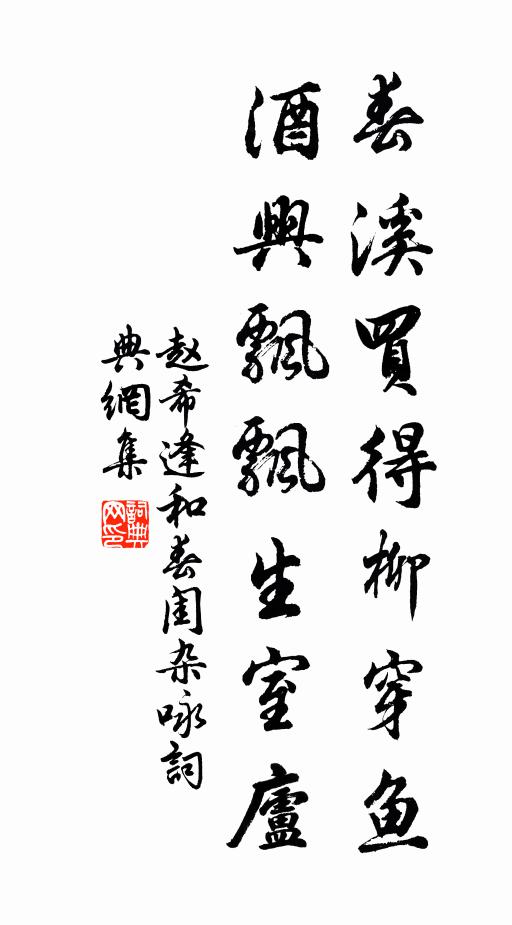 春溪買得柳穿魚
酒興飄飄生室廬
赵希逢和春閨杂咏詞
典網集
詞典
网印